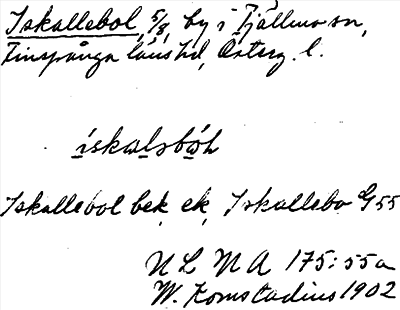 Iskallebol, 5/8, by i Tjällmo sn,
Finspånga läns hd, Österg. l.
ískalsbòh
Iskallebol bek. ek. Iskallebo G 55
N L M A 175:55a
W. Komstadius 1902